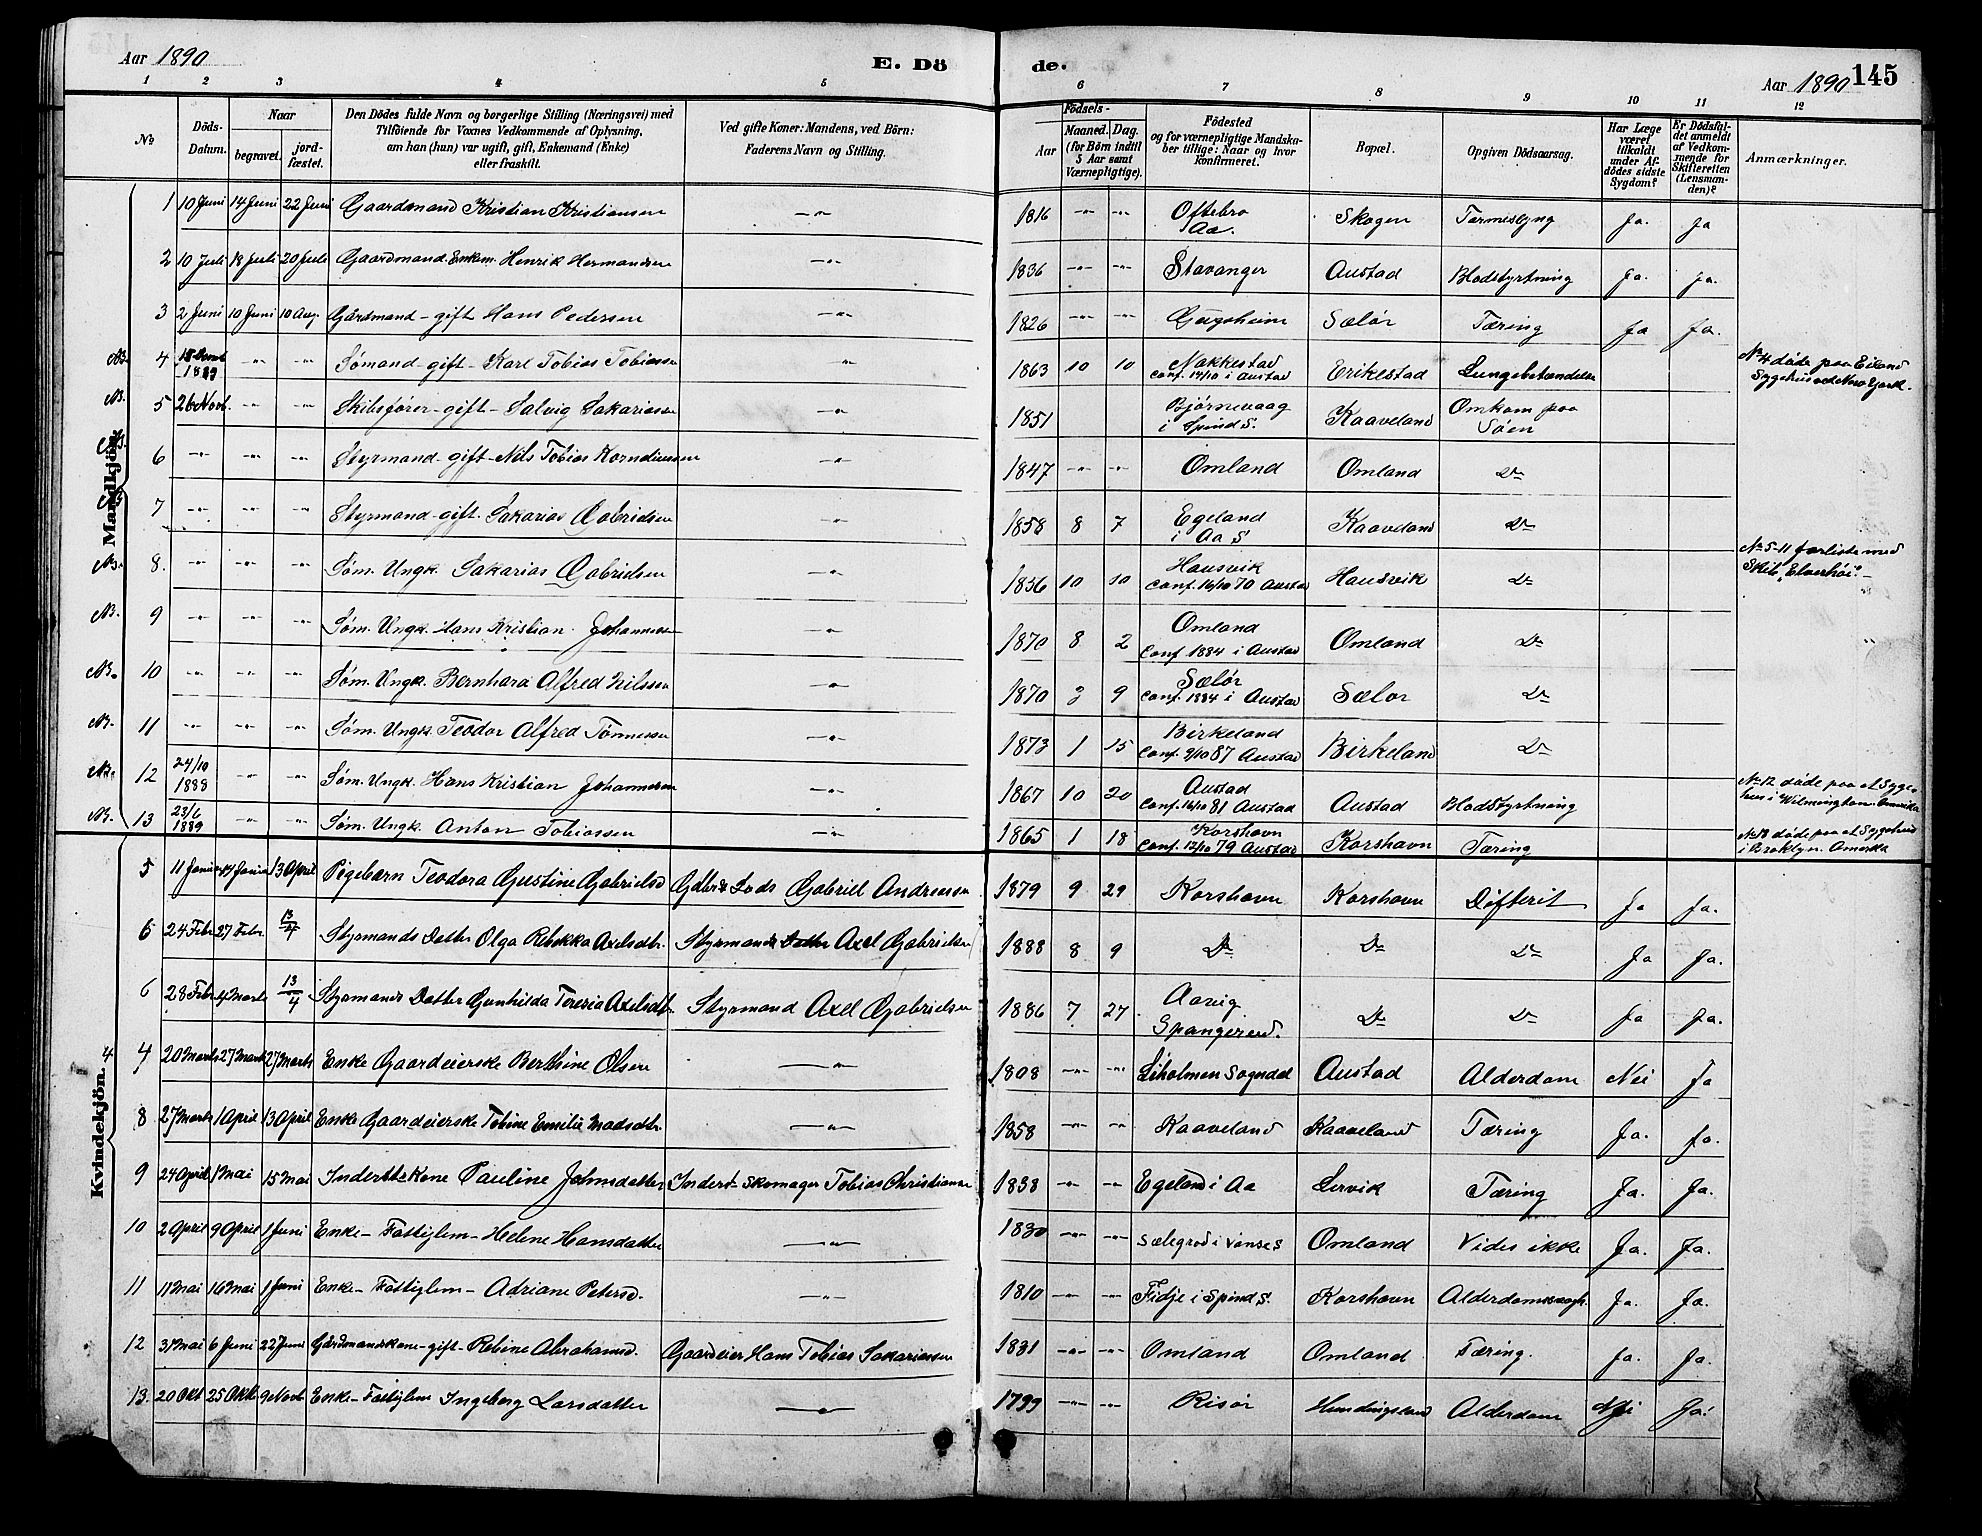 Aar 1890 E. Dö de. Aar 1890 145
1 2 3 4 5 6 7 8 9 10 11 12
No
Döds-Datum.
Naar
begravet.
jord-fæstet.
Den Dödes fulde Navn og borgerlige Stilling (Næringsvei) med
Tilföiende for Voxnes Vedkommende af Oplysning,
om han (hun) var ugift, gift, Enkemand (Enke)
eller fraskilt.
Ved gifte Koner: Mandens, ved Börn:
Faderens Navn og Stilling.
Födsels-
Aar
Maaned. Dag.
(for Börn indtil
5 Aar samt
Værnepligtige).
Födested
og for værnepligtige Mandska-
ber tillige: Naar og hvor
Konfirmeret.
Bopæl.
Opgiven Dödsaarsag.
Har Læge
været
tilkaldt
under Af-
dödes sidste
Sygdom?
Er Dödsfal-
det anmeldt
af Vedkom-
mende for
Skifteretten
(Lensman-
den)?
Anmærkninger.
Mandkjön.
1 10 Juni 14 Juni 22 Juni Gaardmand Kristian Kristiansen -"- 1816 -"- -"- Oftebro Aa. Skogen Tarmeslyng Ja. Ja
2 10 Juli 18 Juli 20 Juli Gaardmand Enkem. Henrik Hermansen -"- 1836 -"- -"- Stavanger Austad Blodstyrtning Ja. Ja.
3 2 Juni 10 Juni 10 Aug. Gårdmand - gift Hans Pedersen -"- 1826 -"- -"- Sælør Tæring Ja Ja.
NB. 4 1889 -"- -"- Sømand - gift - Karl Tobias Tobiassen -"- 1863 10 10 Nakkestad Conf. i Austad Erikestad Lungebetændelse No 4 døde paa
NB. 5 26 Novb. -"- -"- Skibsfører - gift - Salvig Sakariassen -"- 1851 Bjørnevaag i Spind S. Kaaveland Omkom paa Søen
6 -"- -"- -"- Styrmand - gift - Nils Tobias Korneliussen -"- 1847 -"- -"- Omland Omland Do
7 -"- -"- -"- Styrmand - gift. Sakarias Gabrielsen -"- 1858 8 7 Egeland i Aa S Kaaveland Do
NB. 8. -"- -"- -"- Søm. Ungk. Sakarias Gabrielsen -"- 1856 10 10 Hausvik Conf. 16/10 70 Austad Hausvik Do No 5-11 forliste med Skib "Elverhøi". -
NB. 9 -"- -"- -"- Søm. Ungk. Hans Kristian Johannesen -"- 1870 8 2 Omland Conf 1884 i Austad Omland Do
NB. 10 -"- -"- -"- Søm. Ungk. Bernhard Alfred Nilssen -"- 1870 3 9 Sælør Conf. 1884 i Austad Sælor Do
NB. 11 -"- -"- -"- Søm. Ungk. Teodor Alfred Tønnessen -"- 1873 1 15 Birkeland Conf. 2/10 87 Austad Birkeland Do
NB. 12 24/10 1888 -"- -"- Søm. Ungk. Hans Kristian Johannesen -"- 1867 10 20 Austad Conf. 16/10 81 Austad Austad Blodstyrtning No 12 døde paa et Syge- hus i Wilmington. Amerika
NB. 13 23/6 1889 -"- -"- Søm. Ungk. Anton Tobiassen -"- 1865 1 18 Korshavn Conf. 12/10 79 Austad Korshavn Tæring No 13 døde paa et Sygehus i Broklyn. Amerika
Kvindekjön.
5 11 Janr 13 April Pigebarn Teodora Gustine Gabrielsd Lods Gabriel Andreassen 1879 9 29 Korshavn Korshavn Difterit Ja Ja.
6 24 Febr 27 Febr. 13/4 Styrmands Datter Olga Rebekka Axelsdtr. Styrmands Datter Axel Gabrielsen 1888 8 9 Do Do Do Ja Ja.
6 28 Febr 4 Marts 13/4 Styrmands Datter Gunhilda Teresia Axelsdtr. Styrmand Axel Gabrielsen 1886 7 27 Aavig Spangereid. Do Do Ja Ja.
4 20 Marts 27 Marts 27 Marts Enke Gaardeierske Berthine Olsen -"- 1808 -"- -"- Liholmen Sogndal Austad Alderdom Nei Ja
8 27 Marts 1 April 13 April Enke Gaardeierske Tobine Emilie Madsdtr. -"- 1858 -"- -"- Kaaveland Kaaveland Tæring Ja. Ja.
9 24 April 1 Mai 15 Mai Inderstkone Pauline Johnsdatter Inderst Skomager Tobias Christiansen 1838 -"- -"- Egeland i Aa Lervik Tæring Ja. Ja.
10 2 April 9 April 1 Juni Enke - Fattiglem - Helene Hansdatter -"- 1830 -"- -"- Sælegrød i Vanse S Omland Vides ikke Ja. Ja.
11 11 Mai 16 Mai 1 Juni Enke - Fattiglem - Adriane Petersd. -"- 1810 -"- -"- Fidje i Spind S. Korshavn Alderdomssvagh. Ja. Ja.
12 31 Mai 6 Juni 22 Juni Gårdmandskone - gift - Rebine Abrahamsd. Gaardeier Hans Tobias Sakariassen 1831 -"- -"- Omland Omland Tæring. Ja. Ja.
13. 20 Okt 25 Okt 9 Novb Enke - Fattiglem Ingeborg Larsdatter -"- 1799 -"- -"- Risør Alderdom Nei Ja.